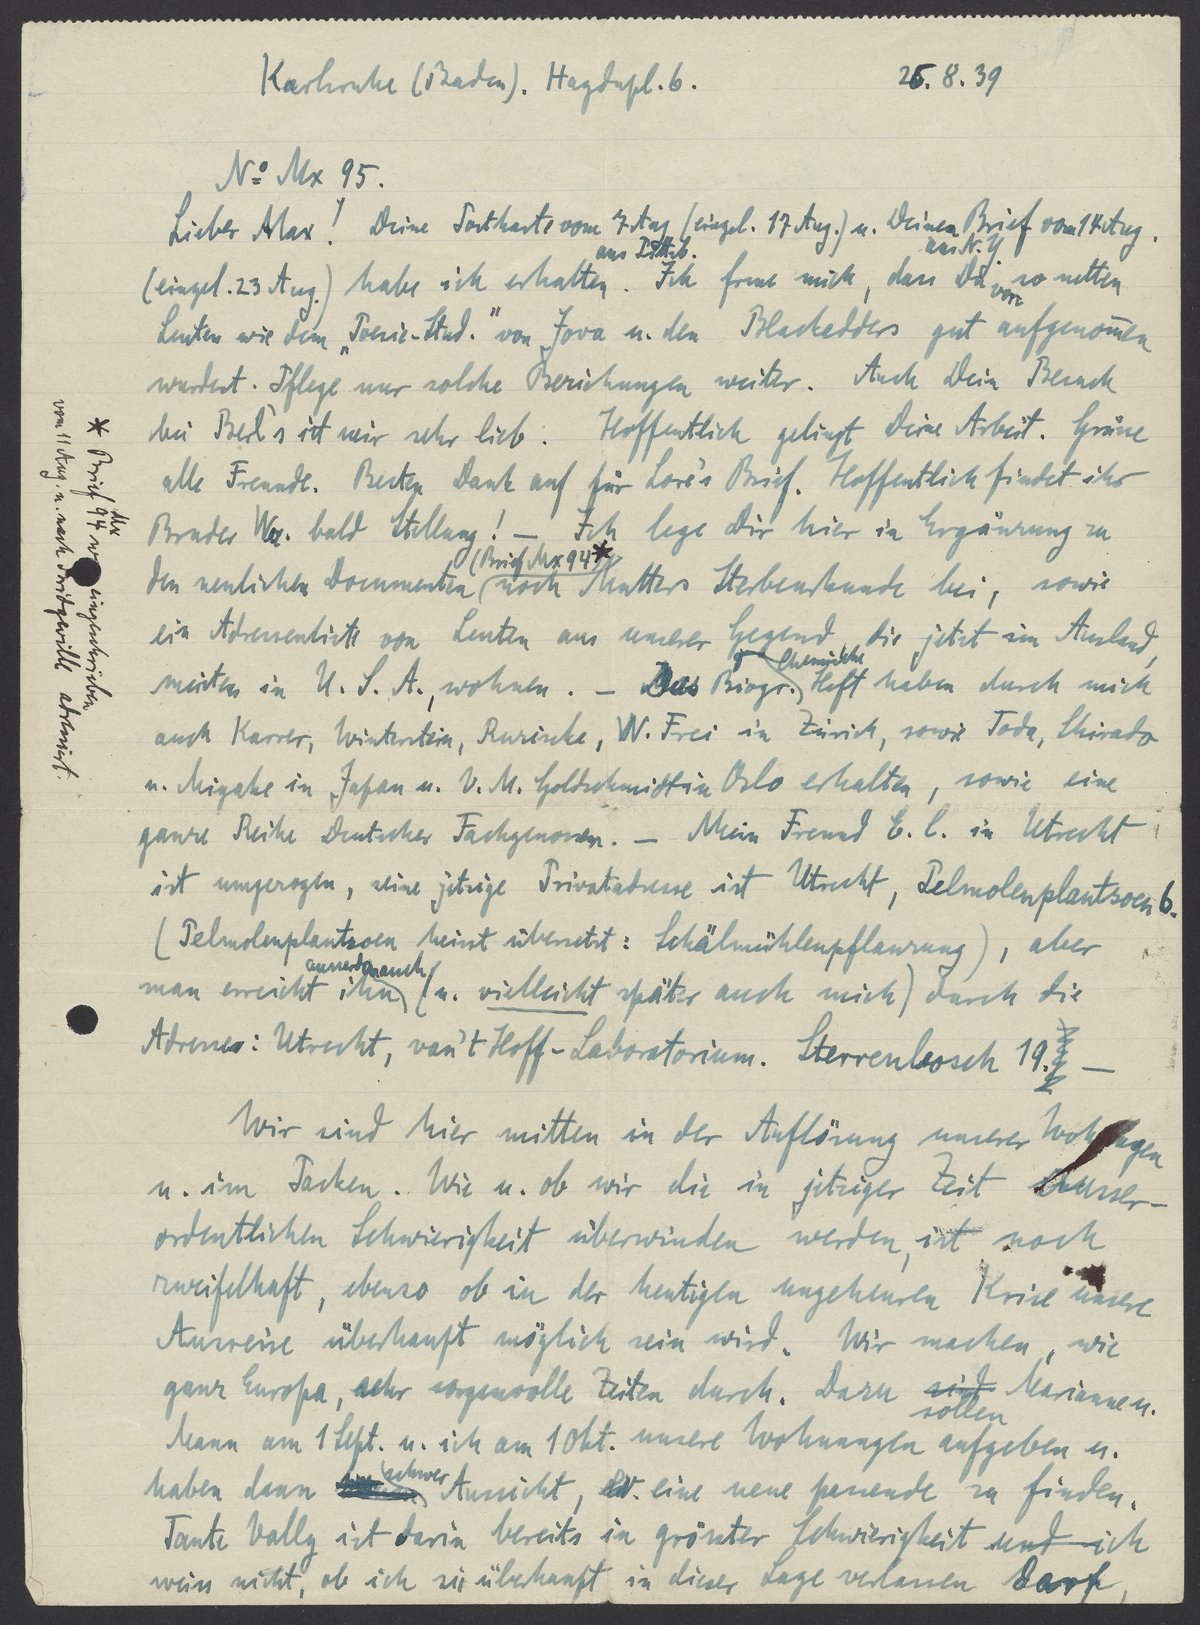 Karlsruhe (Baden). Haydnpl. 6. 26. 8. 39
No Mx 95.
Lieber Max! Deine Postkarte vom 7 Aug (eingel. 17 Aug.) u. Deinen Brief vom 14 Aug.
aus Pittsb. aus N.Y.
(eingel. 23 Aug.) habe ich erhalten. Ich freue mich, dass Du von so netten
Leuten wie dem „Poesie-Stud." von Jova u. den Blackedders gut aufgenom̄en
wurdest. Pflege nur solche Beziehungen weiter. Auch Dein Besuch
bei Berl's ist mir sehr lieb. Hoffentlich gelingt Deine Arbeit. Grüsse
alle Freunde. Besten Dank auf für Lore's Brief. Hoffentlich findet ihr
Bruder bald Stellung! — Ich lege Dir hier in Ergänzung zu
(Brief Mx 94*
den neulichen Documenten noch Mutters Sterbeurkunde bei, sowie
ein Adressenliste von Leuten aus unserer Gegend, die jetzt im Ausland,
Chemische
meistens in U. S. A., wohnen. — Das Biogr. Heft haben durch mich
auch Karrer, Winterstein, Ruzicke, W. Frei in Zürich, sowie Toda, Shirado
u. Migake in Japan u. V. M. Goldschmidt in Oslo erhalten, sowie eine
ganze Reihe Deutscher Fachgenossen. — Mein Freund E. C. in Utrecht
ist umgezogen, seine jetzige Privatadresse ist Utrecht, Pelmolenplantsoen 6.
(Pelmolenplantsoen heisst übersetzt: Schälmühlenpflanzung), aber
ausserdem auch
man erreicht ihn (u. vielleicht später auch mich) durch die
Adresse: Utrecht, van't Hoff-Laboratorium. Sterrenbosch 19. —
Wir sind hier mitten in der Auflösung unserer Wohnungen
u. im Packen. Wie u. ob wir die in jetziger Zeit ausser-
ordentlichen Schwierigkeit überwinden werden, ist noch
zweifelhaft, ebenso ob in der heutigen ungeheuren Krise unsere
Ausreise überhaupt möglich sein wird. Wir machen, wie
ganz Europa, sehr sorgenvolle Zeiten durch. Dazu sind Marianne u.
sollen
Mann am 1 Sept. u. ich am 1 Okt. unsere Wohnungen aufgeben u.
haben dann schwer Aussicht, eine neue passende zu finden.
Tante Vally ist darin bereits in grösster Schwierigkeit und ich
weiss nicht, ob ich sie überhaupt in dieser Lage verlassen darf,
* Brief Mx 94 eingeschrieben
vom 11 Aug. u. nach adressiert.